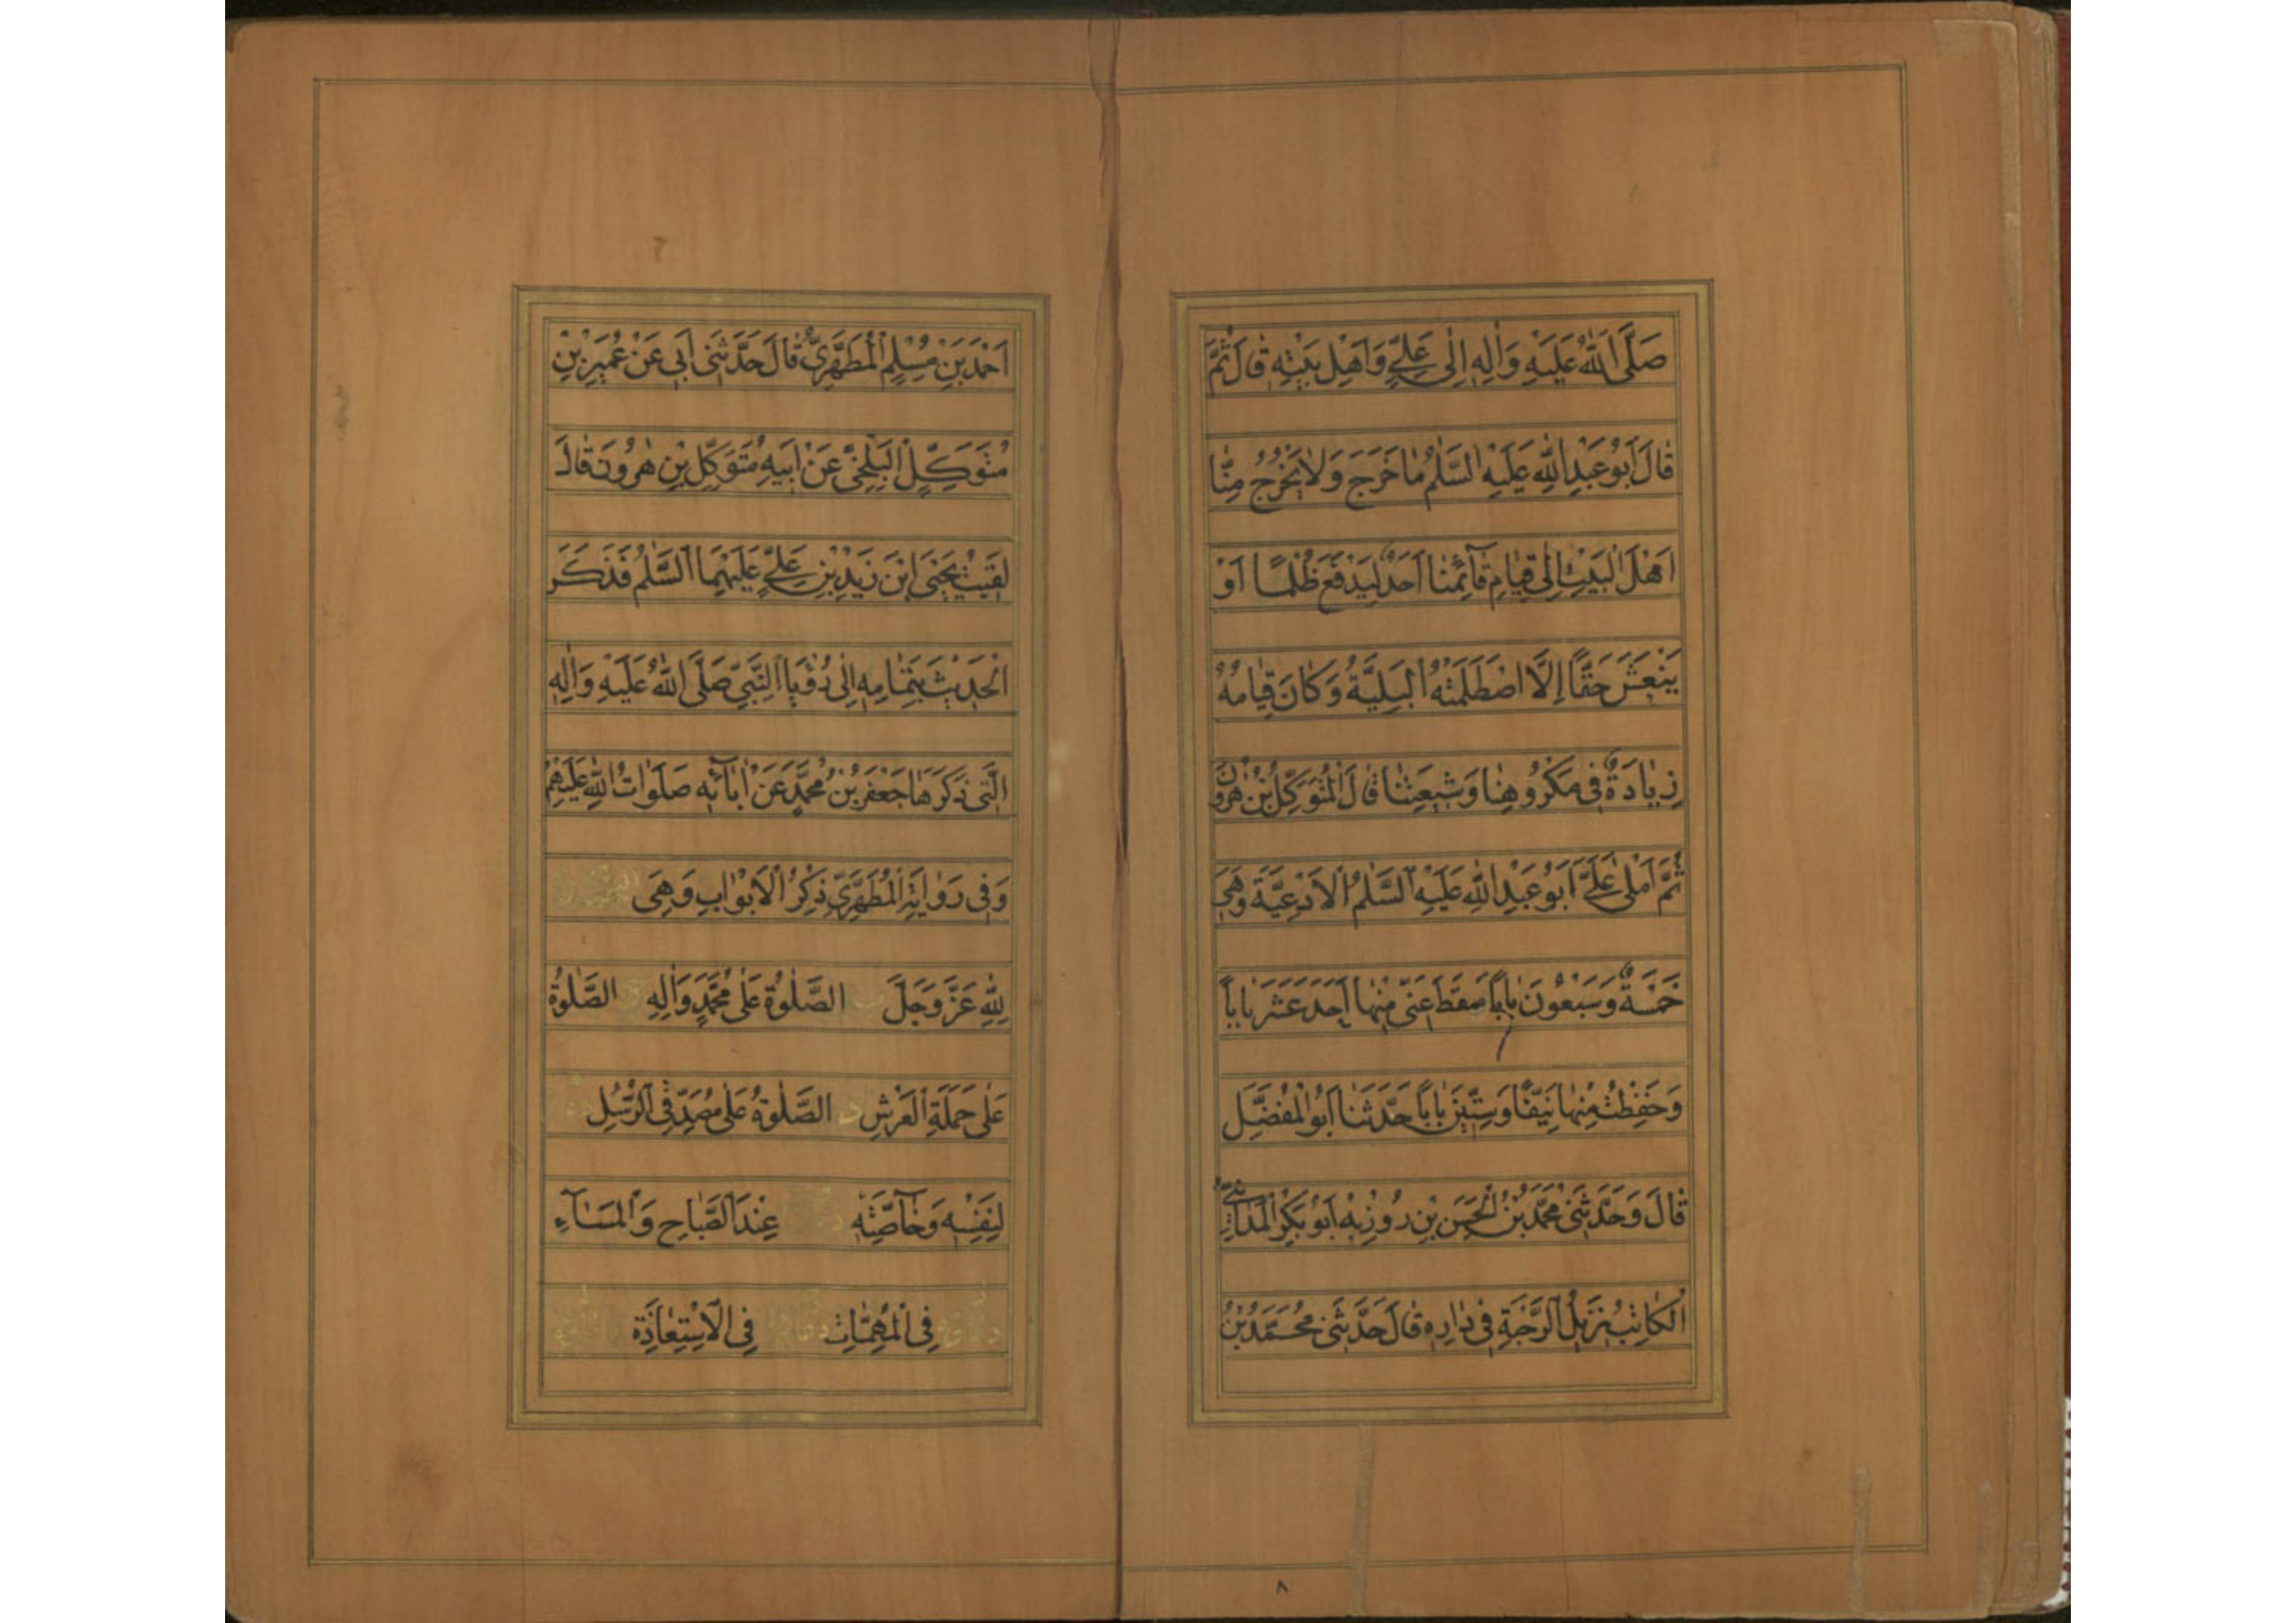 صَلَّى اللهُ عَلَيْهِ وَاٰلِهِ اِلٰى عَلِيٍّ وَاَهْلِ بَيْتِهِ قٰالَ ثُمَّ
قٰالَ اَبُو عَبْدِ اللهِ عَلَيْهِ السَّلٰمُ مٰا خَرَجَ وَلٰا يَخْرُجُ مِنّٰا
اَهْلَ الْبَيْتِ اِلٰى قِيٰامِ قٰآئِمِنٰا اَحَدٌ لِيَدْفَعَ ظُلْمًا اَوْ
يَنْعَشَ حَقًّا اِلَّا اصْطَلَمَتْهُ الْبَلِيَّةُ وَكٰانَ قِيٰامُهُ
زِيٰادَةً فِى مَكْرُوهِنٰا وَشِيعَتِنٰا قٰالَ الْمُتَوَكِّلُ بْنُ هٰرُونَ
ثُمَّ اَمْلٰى عَلَيَّ اَبُو عَبْدِ اللهِ عَلَيْهِ السَّلٰمُ الْاَدْعِيَةَ وَهِيَ
خَمْسَةٌ وَسَبْعُونَ بٰابًا سَقَطَ عَنّى مِنْهٰا اَحَدَ عَشَرَ بٰابًا
وَحَفِظْتُ مِنْهٰا نَيِّفًا وَسِتِّينَ بٰابًا حَدَّثَنٰا اَبُو الْمُفَضَّلِ
قٰالَ وَحَدَّثَنِى مُحَمَّدُ بْنُ الْحَسَنِ بْنِ رُوزْبِهْ اَبُو بَكْرٍ الْمَدٰائِنِيُّ
الْكٰاتِبُ نَزِيلُ الرَّحْبَةِ فِى دٰارِهِ قٰالَ حَدَّثَنِى مُحَمَّدُ بْنُ
٨
اَحْمَدَ بْنِ مُسْلِمٍ الْمُطَهَّرِيُّ قٰالَ حَدَّثَنِى اَبِى عَنْ عُمَيْرِ بْنِ
مُتَوَكِّلٍ الْبَلْخِيِّ عَنْ اَبِيهِ مُتَوَكِّلِ بْنِ هٰرُونَ قٰالَ
لَقِيتُ يَحْيَى ابْنَ زَيْدِ بْنِ عَلِيٍّ عَلَيْهِمَا السَّلٰمُ فَذَكَرَ
الْحَدِيثَ بِتَمٰامِهِ اِلٰى رُؤْيَا النَّبِيِّ صَلَّى اللهُ عَلَيْهِ وَاٰلِهِ
الَّتِى ذَكَرَهٰا جَعْفَرُ بْنُ مُحَمَّدٍ عَنْ اٰبٰآئِهِ صَلَوٰاتُ اللهِ عَلَيْهِمْ
وَفِى رَوٰايَةِ الْمُطَهَّرِيِّ ذِكْرُ الْاَبْوٰابِ وَهِىَ
لِلّٰهِ عَزَّ وَجَلَّ ب الصَّلٰوةُ عَلٰى مُحَمَّدٍ وَاٰلِهِ الصَّلٰوةُ
عَلٰى حَمَلَةِ الْعَرْشِ د الصَّلٰوةُ عَلٰى مُصَدِّقِى الرُّسُلِ
لِنَفْسِهِ وَخٰآصَّتِهِ عِنْدَ الصَّبٰاحِ وَالْمَسٰآءِ
فِى الْمُهِمّٰاتِ فِى الْاِسْتِعٰاذَةِ